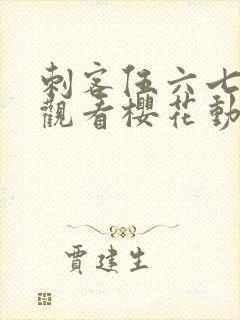 刺客伍六七
觀看櫻花動
賈建生